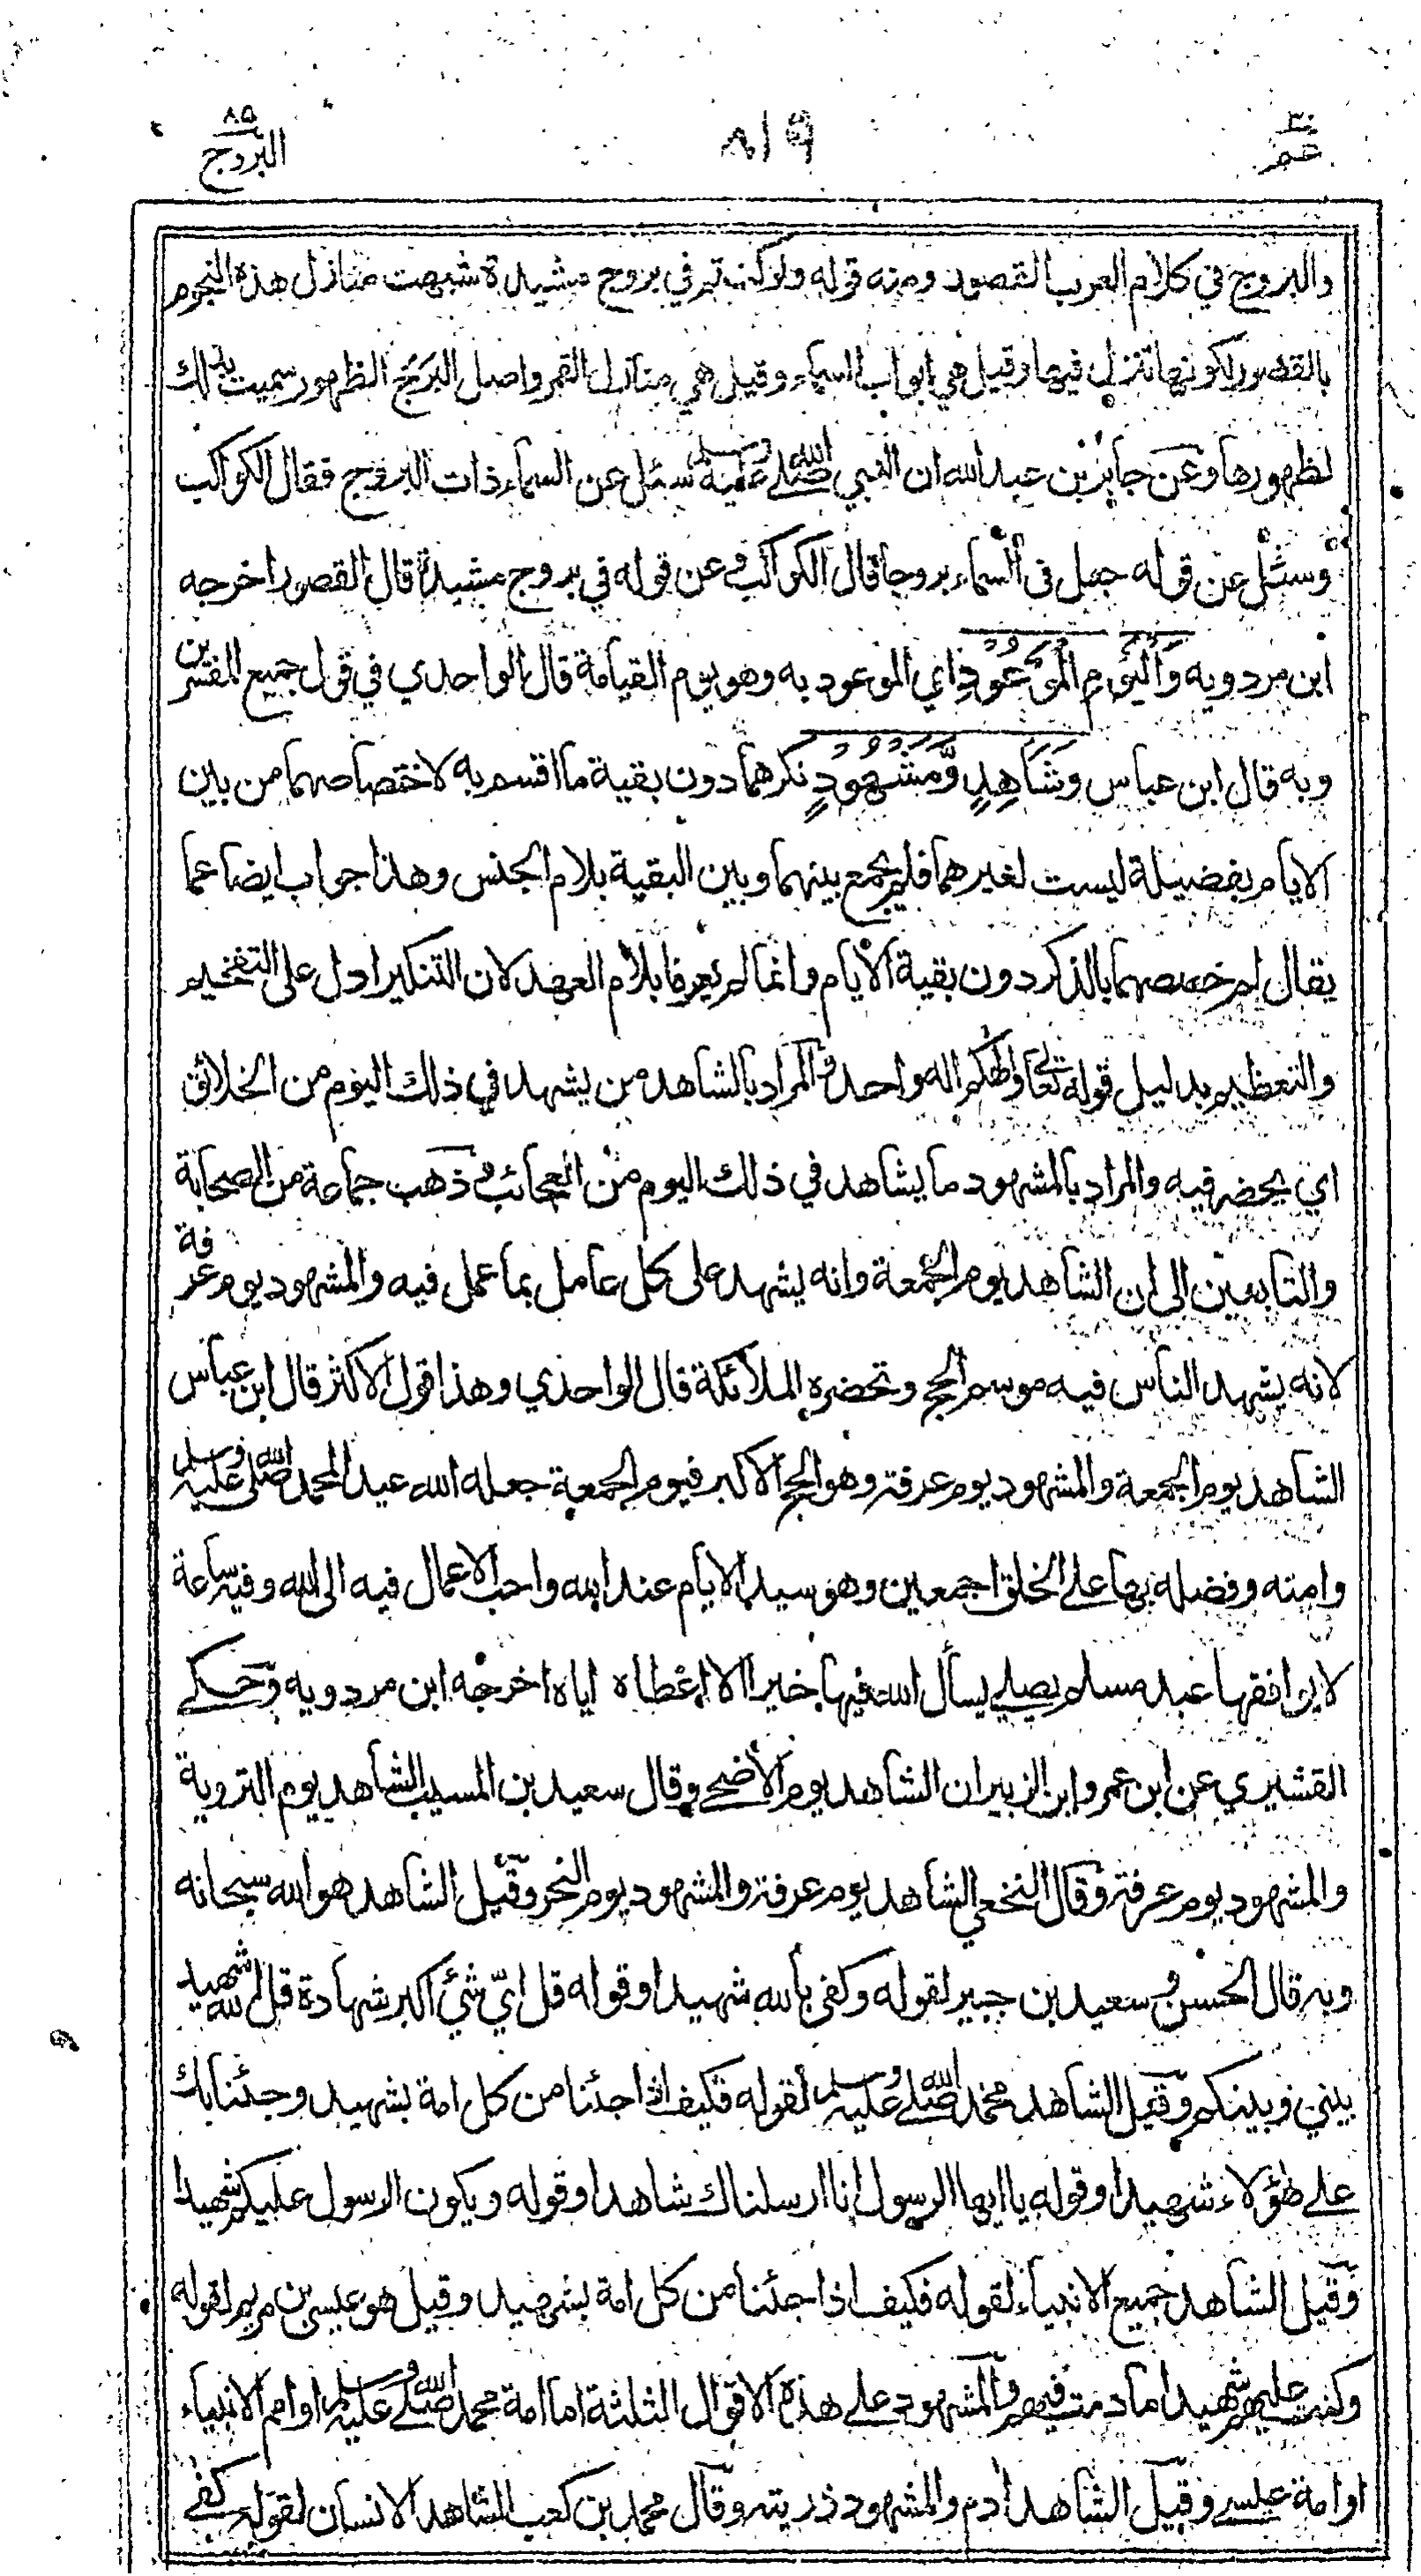 ٣٠
عم
٨١٩
٨٥
البروج
والبروج في كلام العرب القصور ومنه قوله ولو كنتم في بروج مشيدة شبهت منازل هذه النجوم
بالقصور لكونها تنزل فيها وقيل هي ابواب السماء وقيل هي منازل القمر واصل البرج الظهور سميت بذلك
لظهورها وعن جابر بن عبد الله ان النبي صلى الله عليه وسلم سئل عن السماء ذات البروج فقال الكواكب
وسئل عن قوله جعل في السماء بروجا قال الكواكب وعن قوله في بروج مشيدة قال القصور اخرجه
ابن مردويه وَالْيَوْمِ الْمَوْعُوْدِ اي الموعود به وهو يوم القيامة قال الواحدي في قول جميع المفسرين
وبه قال ابن عباس وَشَاهِدٍ وَّمَشْهُوْدٍ نكرهما دون بقية ما اقسم به لاختصاصهما من بين
الايام بفضيلة ليست لغيرهما فلم يجمع بينهما وبين البقية بلام الجنس وهذا جواب ايضا عما
يقال لم خصصهما بالذكر دون بقية الأيام وانما لم يعرفا بلام العهد لان التنكير ادل على التفخيم
والتعظيم بدليل قوله تعالى والهكم اله واحد والمراد بالشاهد من يشهد في ذلك اليوم من الخلائق
اي يحضر فيه والمراد بالمشهود ما يشاهد في ذلك اليوم من العجائب وذهب جماعة من الصحابة
والتابعين الى ان الشاهد يوم الجمعة وانه يشهد على كل عامل بما عمل فيه والمشهود يوم عرفة
لانه يشهد الناس فيه موسم الحج وتحضره الملائكة قال الواحدي وهذا قول الاكثر قال ابن عباس
الشاهد يوم الجمعة والمشهود يوم عرفة وهو الحج الاكبر فيوم الجمعة جعله الله عيد المحمد صلى الله عليه وسلم
وامته وفضله بها على الخلق اجمعين وهو سيد الايام عند الله واحب الاعمال فيه الى الله وفيه ساعة
لا يوافقها عبد مسلم يصلي يسأل الله فيها خيرا الا اعطاه اياه اخرجه ابن مردويه وحكى
القشيري عن ابن عمر وابن الزبير ان الشاهد يوم الأضحى وقال سعيد بن المسيب الشاهد يوم التروية
والمشهود يوم عرفة وقال النخعي الشاهد يوم عرفة والمشهود يوم النحر وقيل الشاهد هو الله سبحانه
وبه قال الحسن وسعيد بن جبير لقوله وكفى بالله شهيدا وقوله قل ايّ شيء اكبر شهادة قل الله شهيد
بيني وبينكم وقيل الشاهد محمد صلى الله عليه وسلم لقوله فكيف اذا جئنا من كل امة بشهيد وجئنا بك
على هؤلاء شهيدا وقوله يا ايها الرسول انا ارسلناك شاهدا وقوله ويكون الرسول عليكم شهيدا
وقيل الشاهد جميع الانبياء لقوله فكيف اذا جئنا من كل امة بشهيد وقيل هو عيسى بن مريم لقوله
وكنت عليهم شهيدا ما دمت فيهم والمشهود على هذه الاقوال الثلثة اما امة محمد صلى الله عليه وسلم او امم الانبياء
او امة عيسى وقيل الشاهد آدم والمشهود ذريته وقال محمد بن كعب الشاهد الانسان لقوله كفى